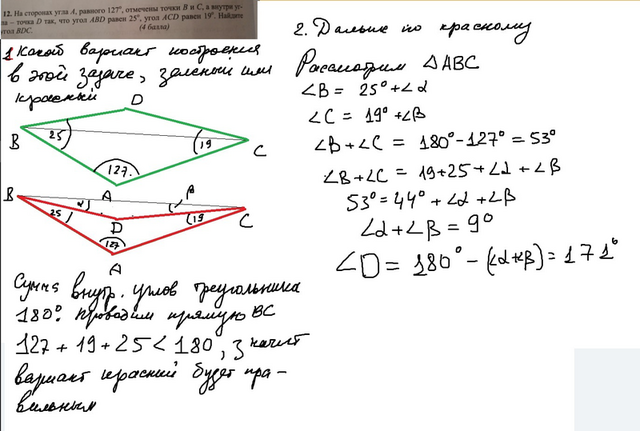 12. На сторонах угла A, равного 127°, отмечены точки B и C, а внутри уг-
ла – точка D так, что угол ABD равен 25°, угол ACD равен 19°. Найдите
угол BDC. (4 балла)
1 Какой вариант построения
в этой задаче, зеленый или
красный
D
B
25
19
C
127.
A
B
α
β
25
19
C
D
127
A
Сумма внутр. углов треугольника
180° Проводим прямую BC
127 + 19 + 25 < 180, значит
вариант красный будет пра-
вильным
2. Дальше по красному
Рассмотрим △ABC
∠B = 25° + ∠α
∠C = 19° + ∠β
∠B + ∠C = 180° - 127° = 53°
∠B + ∠C = 19 + 25 + ∠α + ∠β
53° = 44° + ∠α + ∠β
∠α + ∠β = 9°
∠D = 180° - (∠α + ∠β) = 171°